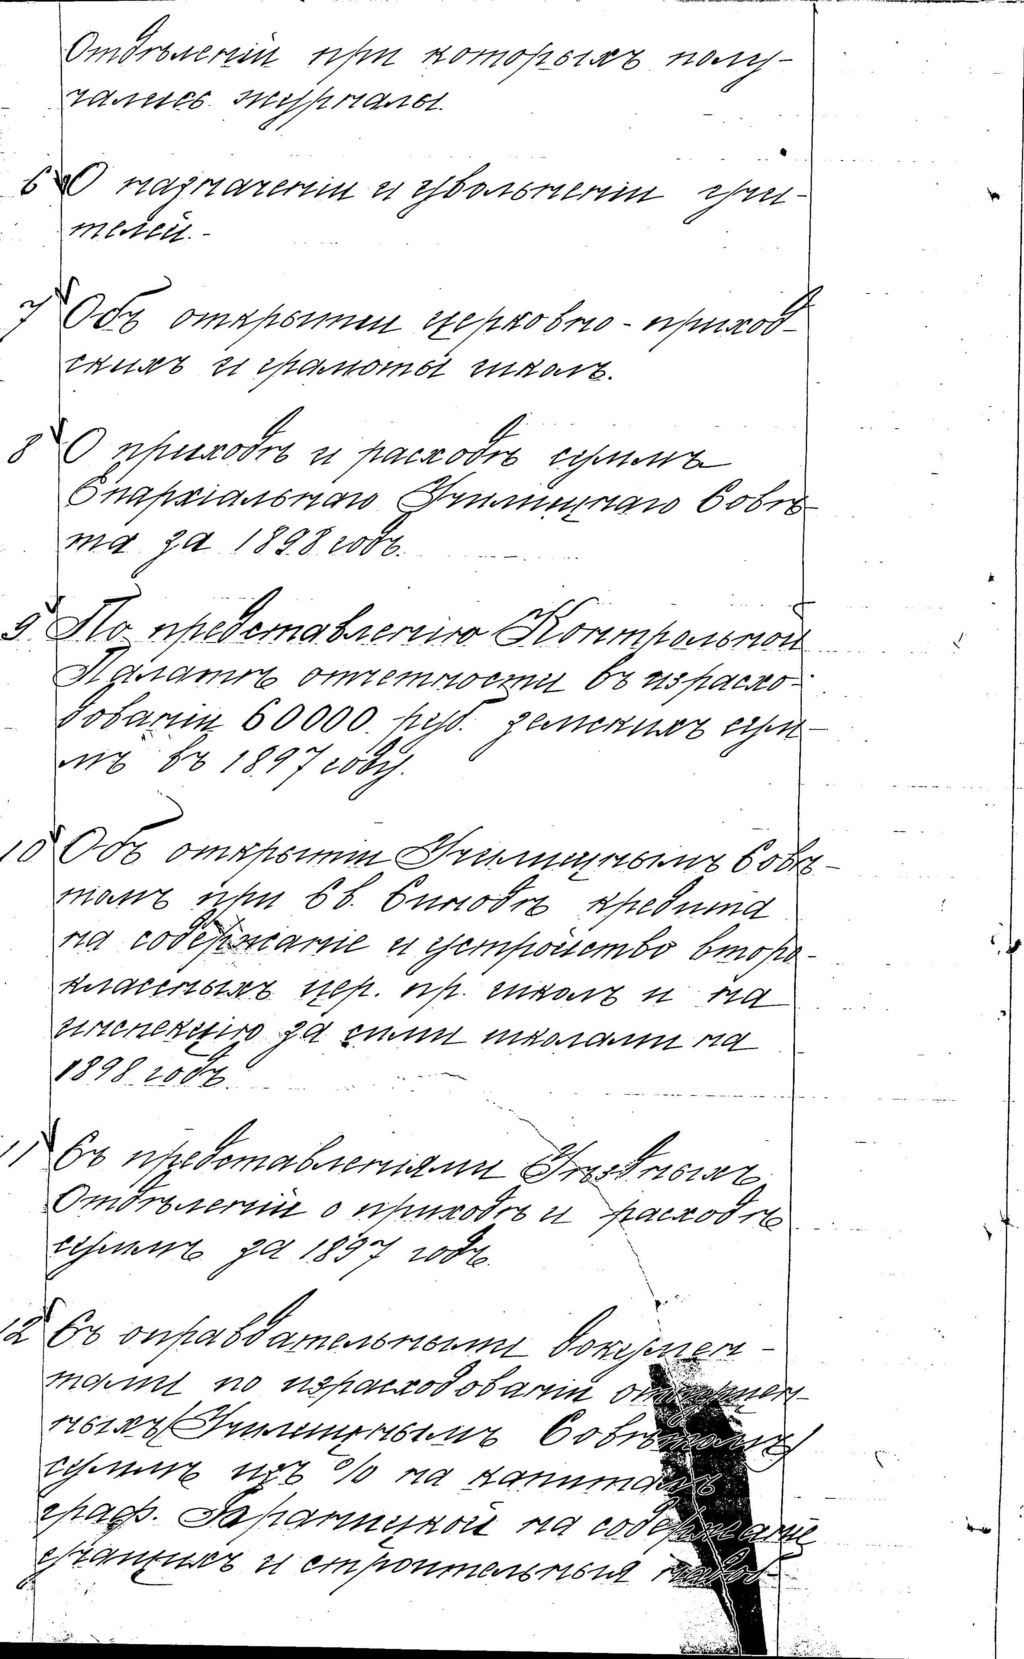 Отдѣленій при которыхъ полу-
чались журналы.
6 О назначеніи и увольненіи учи-
телей.-
7 Объ открытіи церковно-приход-
скихъ и грамоты школъ.
8 О приходѣ и расходѣ суммъ
Епархіальнаго Училищнаго Совѣ-
та за 1898 годъ.
9 По представленію Контрольной
Палатѣ отчетности въ израсхо-
дованіи 60000 руб. земскихъ сум-
мъ въ 1897 году.
10 Объ открытіи Училищнымъ Совѣ-
томъ при Св. Синодѣ кредита
на содержаніе и устройство второ-
классныхъ цер. пр. школъ и на
инспекцію за сими школами на
1898 годъ.
11 Съ представленіями Уѣздныхъ
Отдѣленій о приходѣ и расходѣ
суммъ за 1897 годъ.
12 Съ оправдательными докумен-
тами по израсходованіи отпущен-
ныхъ (Училищнымъ Совѣтомъ)
суммъ изъ % на капиталъ
граф. на содержаніе
учащихъ и строительныя надоб-